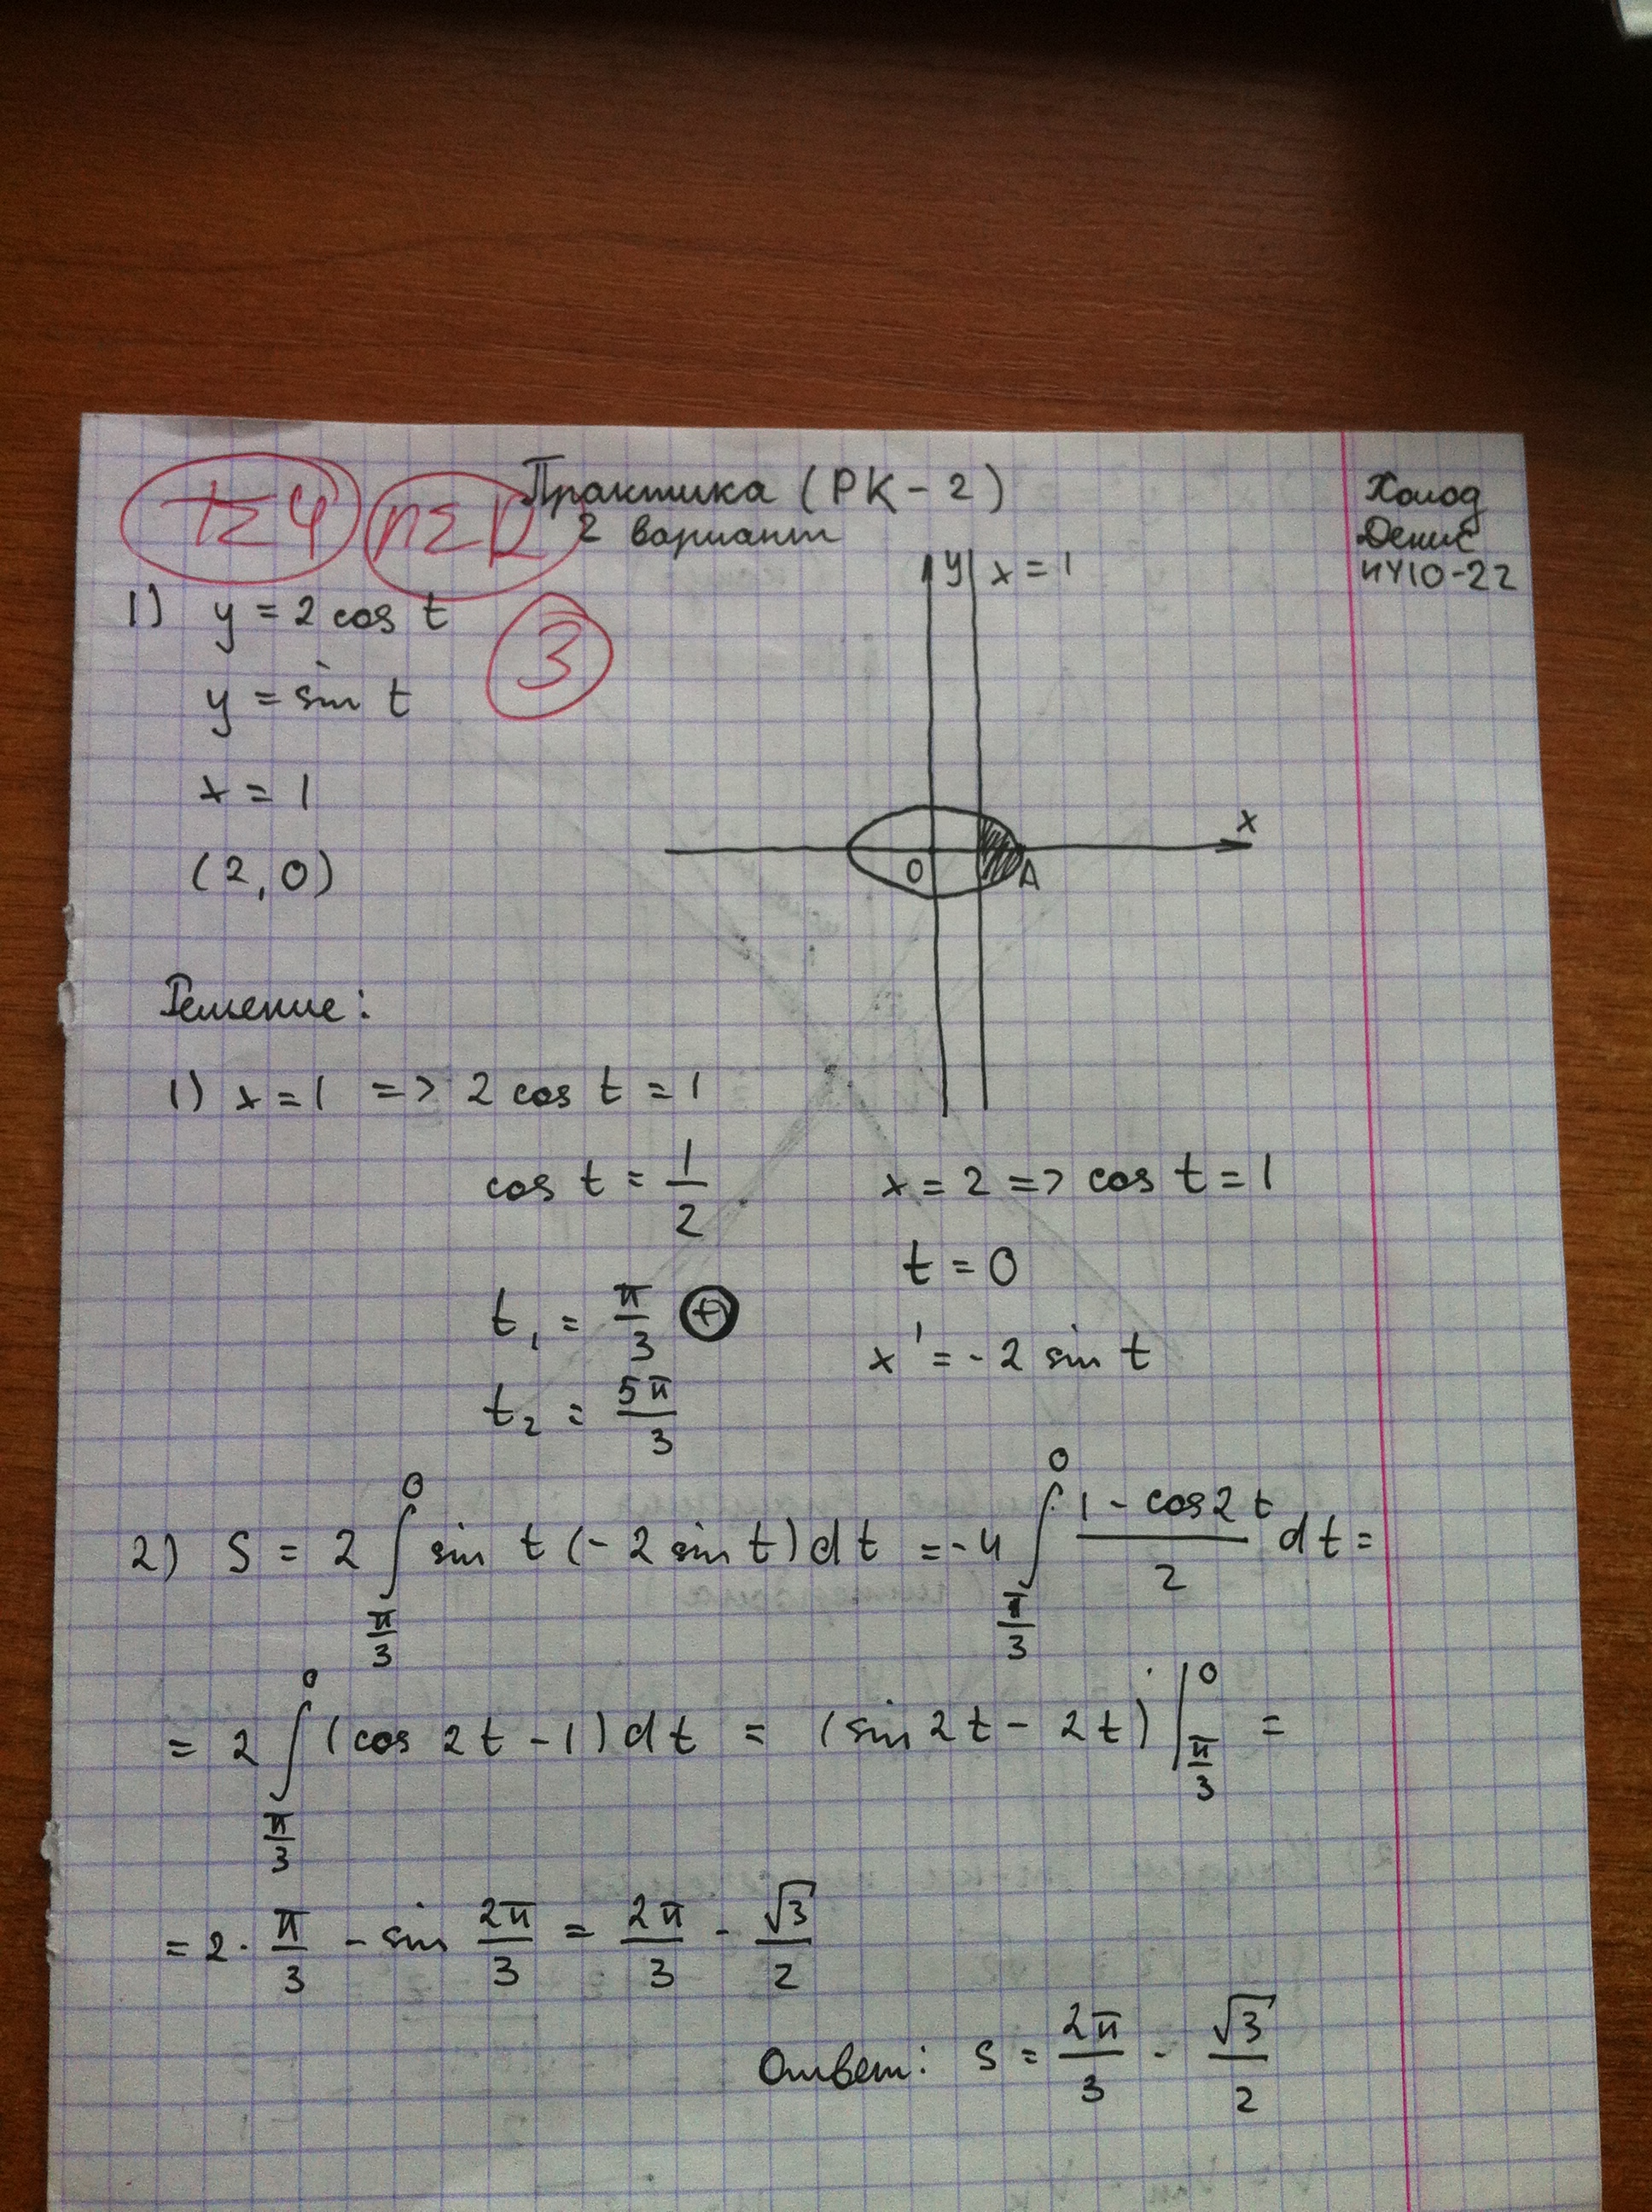 Практика (РК-2)
2 вариант
Холод
Денис
ИУ10-22
1) y = 2 cos t
3
y = sin t
x = 1
(2, 0)
y x = 1
x
0 A
Решение:
1) x = 1 => 2 cos t = 1
cos t = 1/2
x = 2 => cos t = 1
t = 0
t₁ = π/3 (+)
x' = -2 sin t
t₂ = 5π/3
2) S = 2 ∫_{π/3}^{0} sin t (-2 sin t) dt = -4 ∫_{π/3}^{0} (1 - cos 2t)/2 dt =
= 2 ∫_{π/3}^{0} (cos 2t - 1) dt = (sin 2t - 2t) |_{π/3}^{0} =
= 2 · π/3 - sin 2π/3 = 2π/3 - √3/2
Ответ: S = 2π/3 - √3/2